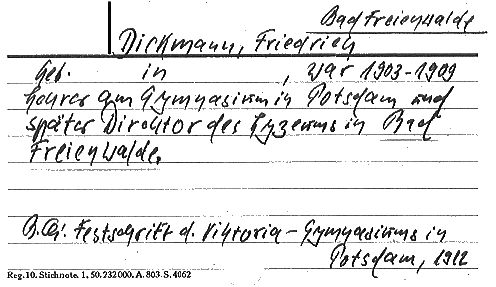 Bad Freienwalde
Dickmann, Friedrich
Geb. in , war 1903-1909
Lehrer am Gymnasium in Potsdam und
später Direktor des Lyzeums in Bad
Freienwalde.
B.Ch. Festschrift d. Viktoria-Gymnasiums in
Potsdam, 1912
Reg. 10. Stichnote. 1, 50. 232000. A. 803. S. 4062